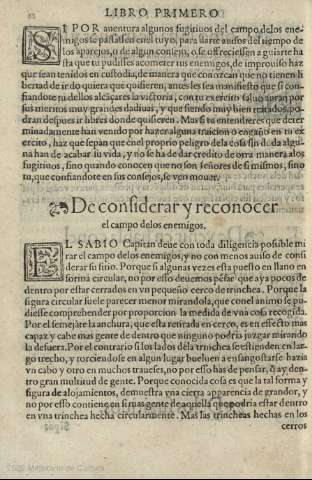 LIBRO PRIMERO
SI POR auentura algunos fugitiuos del campo delos ene-
migos se passassen en el tuyo, para darte auiso del tiempo de
los aparejos, o de algun consejo, o se offreciessen a guiarte ha
sta que tu pudiesses acometer tus enemigos, de improuiso haz
que sean tenidos en custodia, de manera que conozcan que no tienen li
bertad de ir do quiera que quisieren, antes les sea manifiesto que si con
fiandote ni dellos alcançares la victoria, con tu exercito saluo auran por
sus meritos muy grandes dadiuas, y que siendo muy bien tratados, po-
dran despues ir libres donde quisieren. Mas si tu entendieres que deter
minadamente han venido por hazer alguna traicion o engaño en tu ex
ercito, haz que sepan que enel proprio peligro dela cosa sin duda algu-
na han de acabar su vida, y no se ha de dar credito de otra manera, alos
fugitiuos, sino quando conocen que no son señores de si mismos, sino
tu, que confiandote en sus consejos, se ven mouer.
De considerar y reconocer
el campo delos enemigos.
EL SABIO Capitan deue con toda diligencia possible mi
rar el campo delos enemigos, y no con menos auiso de consi
derar su sitio. Porque si algunas vezes esta puesto en llano en
forma circular, no por esso deuemos pẽsar que aya pocos de
dentro por estar cerrados en vn pequeño cerco de trinchea. Porque la
figura circular suele parecer menor mirandola, que conel animo se pu-
diesse comprehender por proporcion la medida de vna cosa recogida.
Por el semejãte la anchura, que esta retirada en cerco, es en effecto mas
capaz y cabe mas gente de dentro que ninguno podria juzgar mirando
la defuera. Por el contrario si los lados dela trinchea se estienden en lar-
go trecho, y torciendose en algun lugar bueluen a ensangostarse hazia
vn cabo y otro en muchos traueses, no por esso has de pensar, q̃ ay den-
tro gran multitud de gente. Porque conocida cosa es que la tal forma y
figura de alojamientos, demuestra vna cierta apparencia de grandor, y
no por esso contiene en si mas gente de aquella que podria estar dentro
en vna trinchea hecha circularmente. Mas las trincheas hechas en los
cerros